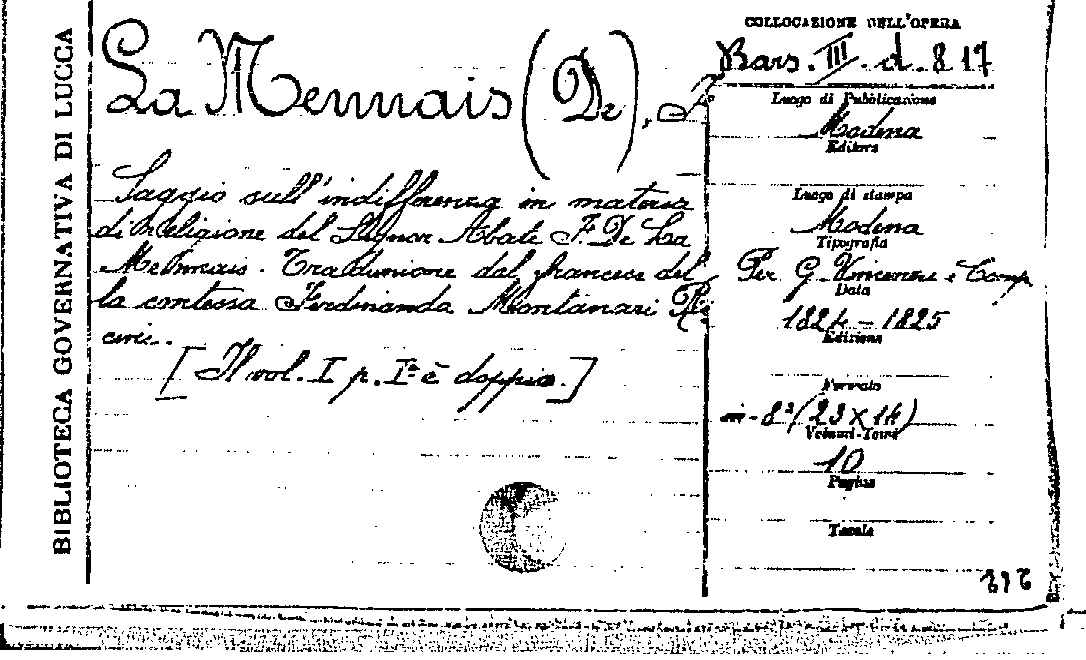 BIBLIOTECA GOVERNATIVA DI LUCCA
La Mennais (De), F.
Saggio sull'indifferenza in materia
di religione del Signor Abate F. De La
Mennais. Traduzione dal francese del
la contessa Ferdinanda Montanari
[Il vol. I p. Iª è doppio.]
COLLOCAZIONE DELL'OPERA
Bars. III. d. 8 17
Luogo di Pubblicazione
Modena
Editore
Luogo di stampa
Modena
Tipografia
Per G. Vincenzi e Comp
Data
1824 - 1825
Edizione
Formato
in-8º (23 X 14)
Volumi-Tomi
10
Pagine
Tavole